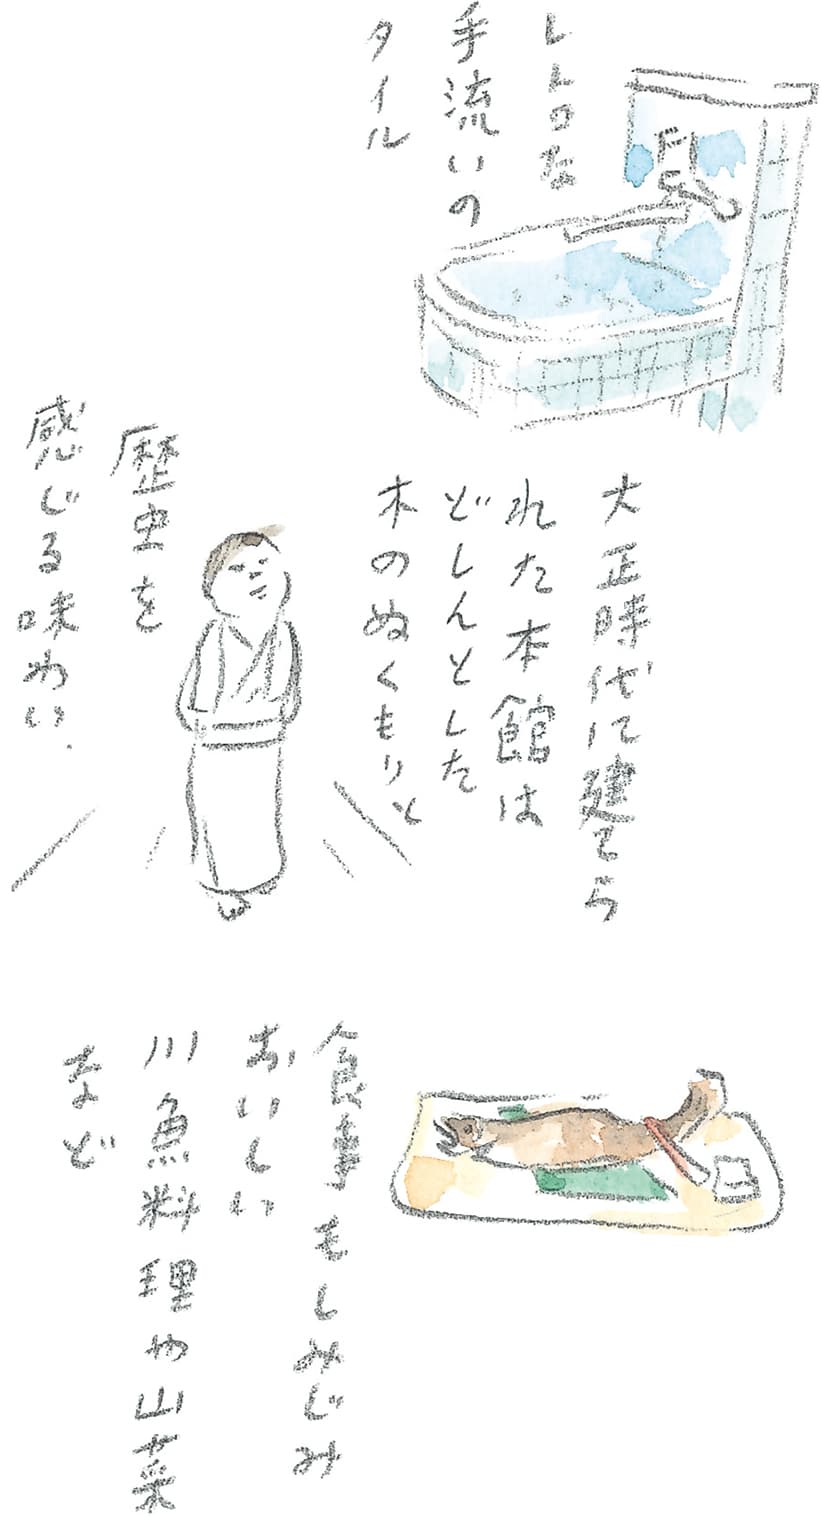 レトロな
手流いの
タイル
大正時代に建てら
れた本館は
どしんとした
木のぬくもりと
歴史を
感じる味わい.
食事もしみじみ
おいしい
川魚料理や山菜
など